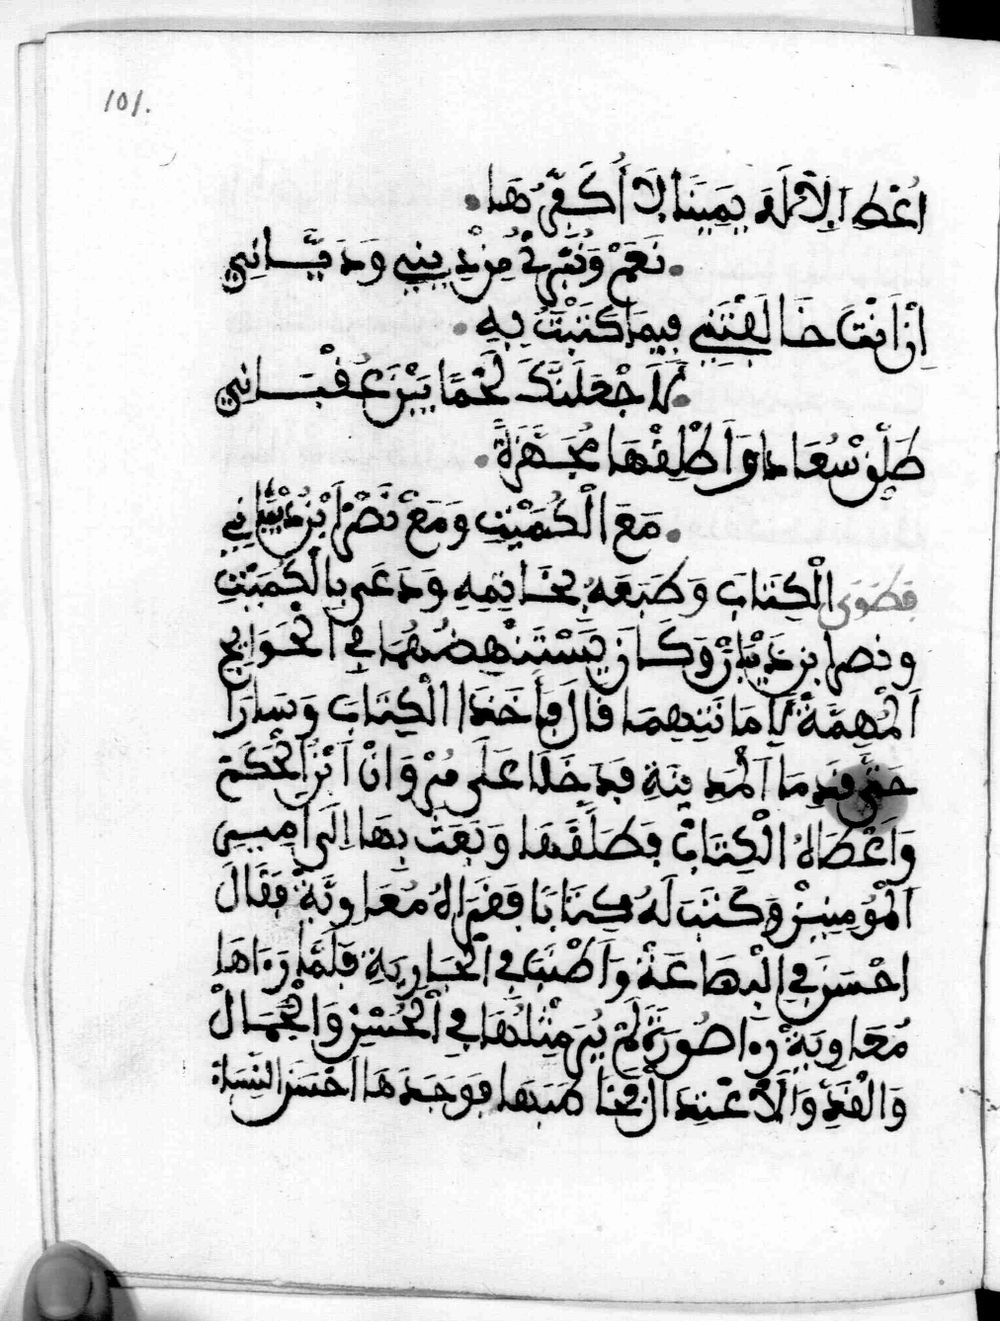 101.
اُعْطِ اِلَالَهَ يَمِينًا لَا أُكَفِّرُهَا.
.نَعَمْ وَنُبْرِئُ مِنْ دِينِي وَدَيَّانِي
اِنَ انْتَ خَالَفْتَنِي فِيمَا كَتَبْتُ بِهِ.
.لَأَجْعَلَنَّكَ لَحْمًا بَيْنَ عُقْبَانِي
طَلِّقْ سُعَادَ وَاَطْلِقْهَا مُجَهَّزَةً.
.مَعَ الْكُمَيْتِ وَمَعْ نَصْرِ اِبْنِ ذُبْيَانِي
فطَوَى الْكِتَابَ وَطَبَعَهُ بِخَاتِمِهِ وَدَعَى بِالْكُمَيْتِ
ونصر بن ذيبان وَكَانَ يَسْتَنْهِضُهُمَا فِي الْحَوَايِجِ
اَلْمُهِمَّةِ لِأَمَانَتِهِمَا قَالَ فَأَخَذَا الْكِتَابَ وَسَارَا
حَتَّى قَدِمَا اَلْمَدِينَةِ فَدَخَلَا عَلَى مَرْوَانْ اَبْنِ الْحَكَمْ
وَاَعْطَاهُ الْكِتَابْ فَطَلَّقَهَا وَبَعَثَ بِهَا اِلَى اَمِيرِ
اَلْمُؤمِنِينْ وَكَتَبَ لَهُ كِتَابًا فَقَرَاهُ مُعَاوِيَةْ فَقَالَ
اَحْسَنَ فِي الْطَاعَةْ وَاَطْنَبَ فِي الْجَارِيَةِ فَلَمَّا رَءَاهَا
مُعَاوِيَةْ رَءَا صُورَةً لَمْ يُرَ مِثْلُهَا فِي الْحُسْنِ وَالْجَمَالْ
وَالْقَدِّ وَالْاَعْتِدَالْ فَخَاطَبَهَا فَوَجَدَهَا اَحْسَنَ النِّسَاءِ